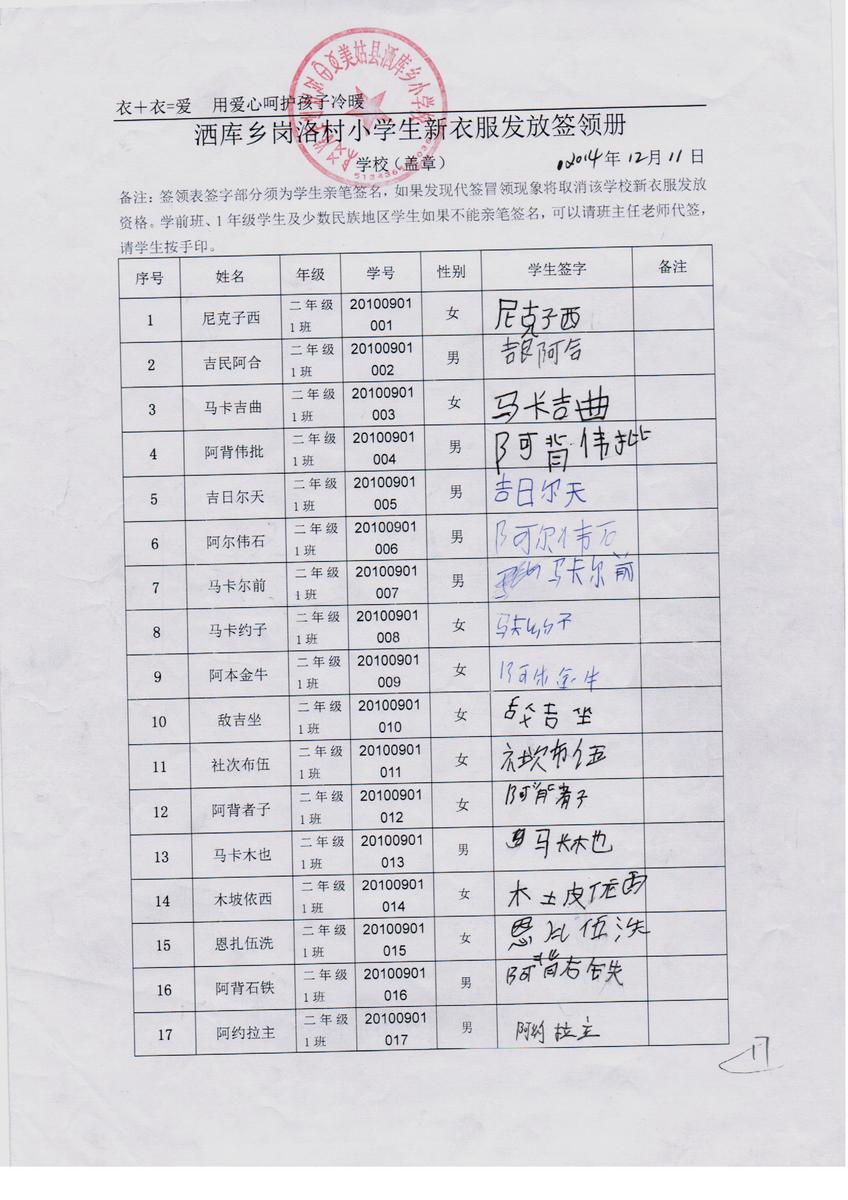 美姑县洒库乡小学校
衣＋衣=爱 用爱心呵护孩子冷暖
洒库乡岗洛村小学生新衣服发放签领册
学校（盖章） 2014年12月11日
备注：签领表签字部分须为学生亲笔签名，如果发现代签冒领现象将取消该学校新衣服发放
资格。学前班、1年级学生及少数民族地区学生如果不能亲笔签名，可以请班主任老师代签，
请学生按手印。
序号 姓名 年级 学号 性别 学生签字 备注
1 尼克子西 二年级1班 20100901001 女 尼克子西
2 吉民阿合 二年级1班 20100901002 男 阿合
3 马卡吉曲 二年级1班 20100901003 女 马卡吉曲
4 阿背伟批 二年级1班 20100901004 男 阿背伟批
5 吉日尔天 二年级1班 20100901005 男 吉日尔天
6 阿尔伟石 二年级1班 20100901006 男 阿尔伟石
7 马卡尔前 二年级1班 20100901007 男 马卡尔前
8 马卡约子 二年级1班 20100901008 女 马卡约子
9 阿本金牛 二年级1班 20100901009 女 阿本金牛
10 敌吉坐 二年级1班 20100901010 女 敌吉坐
11 社次布伍 二年级1班 20100901011 女 社次布伍
12 阿背者子 二年级1班 20100901012 女 阿背者子
13 马卡木也 二年级1班 20100901013 男 马卡木也
14 木坡依西 二年级1班 20100901014 女 木坡依西
15 恩扎伍洗 二年级1班 20100901015 女 恩比伍洗
16 阿背石铁 二年级1班 20100901016 男 阿背石铁
17 阿约拉主 二年级1班 20100901017 男 阿约拉主
17